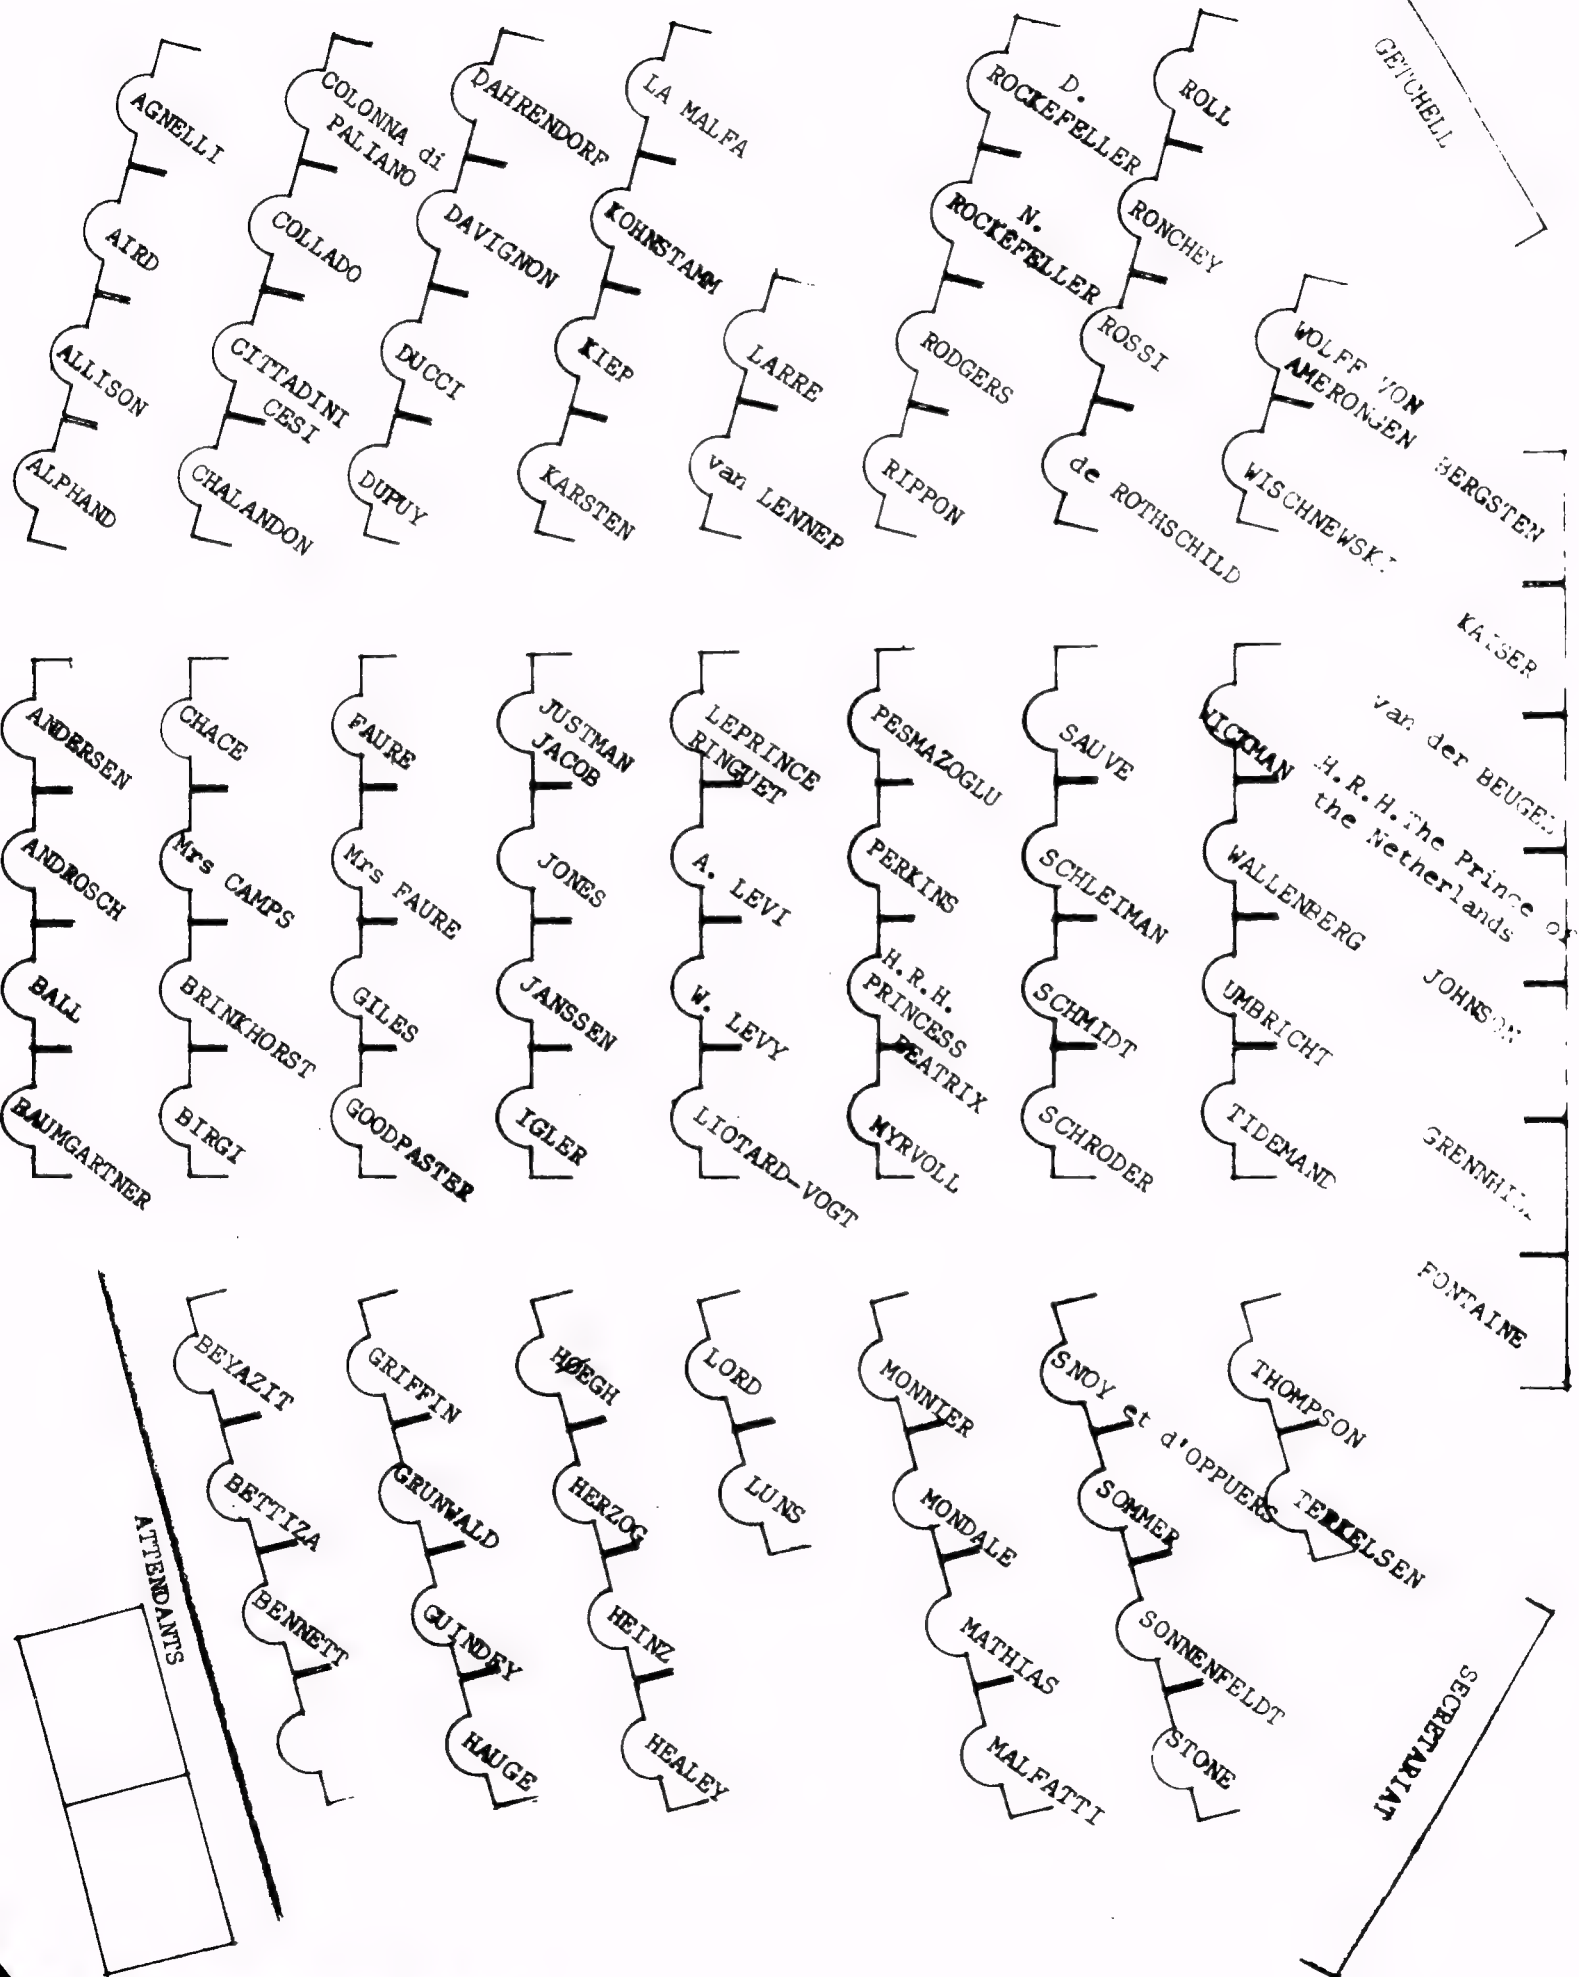 GETCHELL
AGNELLI
AIRD
ALLISON
ALPHAND
COLONNA di
PALIANO
COLLADO
CITTADINI
CESI
CHALANDON
DAHRENDORF
DAVIGNON
DUCCI
DUPUY
LA MALFA
KOHNSTAMM
KIEP
KARSTEN
LARRE
van LENNEP
D.
ROCKEFELLER
N.
ROCKEFELLER
RODGERS
RIPPON
ROLL
RONCHEY
ROSSI
de ROTHSCHILD
WOLFF VON
AMERONGEN
WISCHNEWSKI
BERGSTEN
KAISER
van der BEUGEL
H.R.H. The Prince of
the Netherlands
JOHNSON
GRENNHILL
FONTAINE
ANDERSEN
ANDROSCH
BALL
BAUMGARTNER
CHACE
Mrs CAMPS
BRINKHORST
BIRGI
FAURE
Mrs FAURE
GILES
GOODPASTER
JUSTMAN
JACOB
JONES
JANSSEN
IGLER
LEPRINCE
RINGUET
A. LEVI
W. LEVY
LIOTARD-VOGT
PESMAZOGLU
PERKINS
H.R.H.
PRINCESS
BEATRIX
MYRVOLL
SAUVE
SCHLEIMAN
SCHMIDT
SCHRODER
WICKMAN
WALLENBERG
UMBRICHT
TIDEMAND
ATTENDANTS
BEYAZIT
BETTIZA
BENNETT
GRIFFIN
GRUNWALD
GUINDEY
HAUGE
HØEGH
HERZOG
HEINZ
HEALEY
LORD
LUNS
MONNIER
MONDALE
MATHIAS
MALFATTI
SNOY et d'OPPUERS
SOMMER
SONNENFELDT
STONE
THOMPSON
TERKELSEN
SECRETARIAT